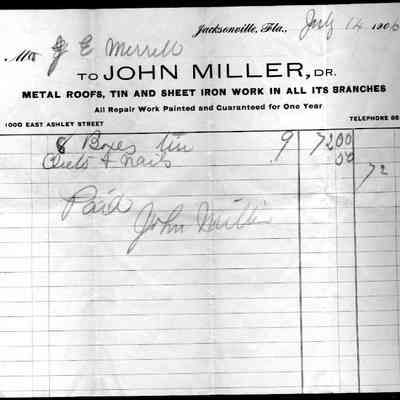 Jacksonville, Fla., July 14 1906
Mr J E Merrell
TO JOHN MILLER, DR.
METAL ROOFS, TIN AND SHEET IRON WORK IN ALL ITS BRANCHES
All Repair Work Painted and Guaranteed for One Year
1000 EAST ASHLEY STREET TELEPHONE
8 Boxes tin 9 72 00
& nails 50
72
Paid
John Miller